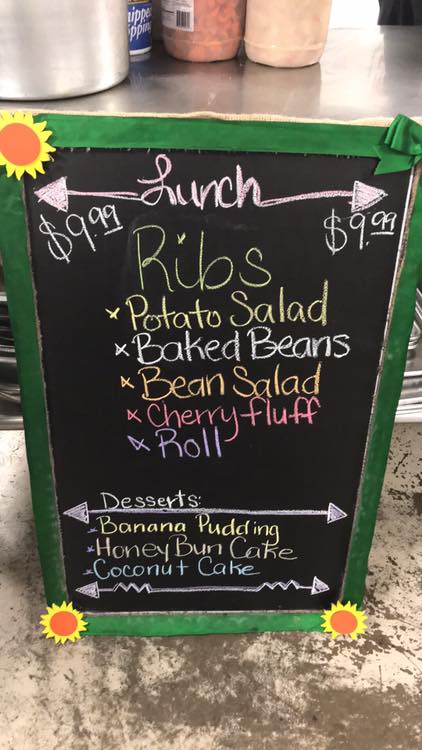 whipped
topping
Lunch
$9.99 $9.99
Ribs
* Potato Salad
* Baked Beans
* Bean Salad
* Cherry fluff
* Roll
Desserts:
* Banana Pudding
* Honey Bun Cake
* Coconut Cake